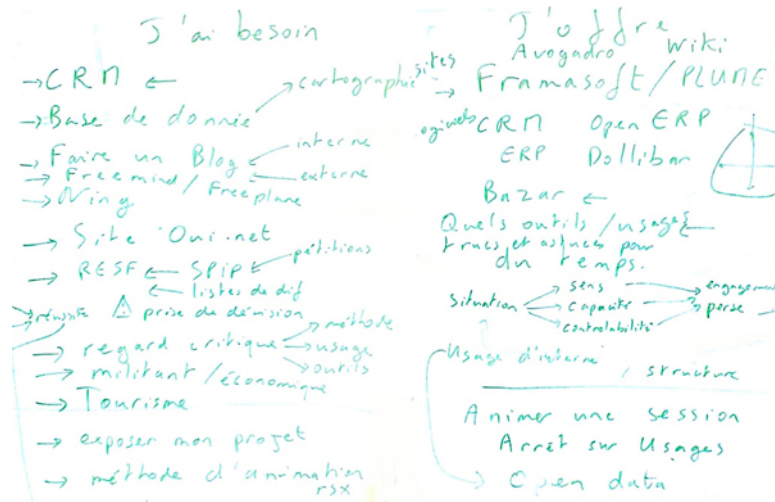 J'ai besoin
→ CRM ←
cartographie
→ Base de donnée
interne
→ Faire un Blog
externe
→ Freemind / Freeplane
→ Ning
→ Site Oui.net
pétitions
→ RESF ← SPIP
← listes de dif
→ réussite ⚠ prise de décision
→ regard critique
→ méthode
→ usage
→ outils
→ militant / économique
→ Tourisme
→ exposer mon projet
→ méthode d'animation
rsx
J'offre
Avogadro Wiki
sites
→ Framasoft / PLUME
ogiciels CRM Open ERP
ERP Dollibar
Bazar ←
Quels outils / usages ←
trucs et astuces pour
du temps.
situation
→ sens
→ capacité
→ controlabilité
→ engagement
→ perse
Usage d'interne
/ structure
Animer une session
Arrêt sur Usages
→ Open data